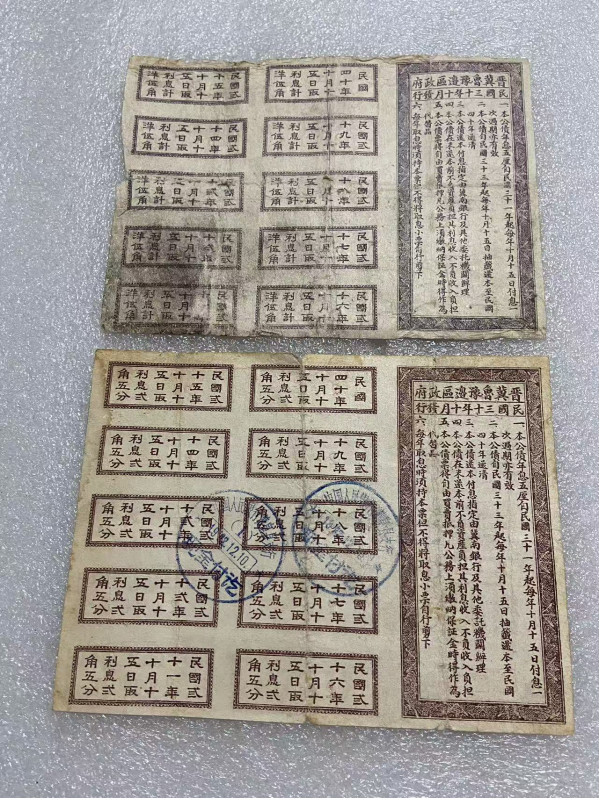 晋冀魯豫邊區政府
民國三十年十月發行
一 本公債年息五厘自民國三十一年起每年十月十五日付息一
次過期亦有效
二 本公債自民國三十三年起每年十月十五日抽籤還本至民國
四十年還清
三 本公債還本付息指定由冀南銀行及其他委託機關辦理
四 本公債在未還本前不負資產負担其利息收入不負收入負担
五 本公債票得自由買賣抵押凡公務上須繳納保証金時得作為
代替品
六 每年取息時須持本票但不得將取息小票自行剪下
民國
四十年
十月十
五日取
利息計
洋伍角
民國弎
十九年
十月十
五日取
利息計
洋伍角
民國弎
十八年
十月十
五日取
利息計
洋伍角
民國弎
十七年
十月十
五日取
利息計
洋伍角
民國弎
十六年
十月十
五日取
利息計
洋伍角
民國弎
十五年
十月十
五日取
利息計
洋伍角
民國弎
十四年
十月十
五日取
利息計
洋伍角
民國弎
五日取
利息計
洋伍角
民國弎
十月十
五日取
利息計
洋伍角
民國弎
十月十
五日取
利息計
洋伍角
晋冀魯豫邊區政府
民國三十年十月發行
一 本公債年息五厘自民國三十一年起每年十月十五日付息一
次過期亦有效
二 本公債自民國三十三年起每年十月十五日抽籤還本至民國
四十年還清
三 本公債還本付息指定由冀南銀行及其他委託機關辦理
四 本公債在未還本前不負資產負担其利息收入不負收入負担
五 本公債票得自由買賣抵押凡公務上須繳納保証金時得作為
代替品
六 每年取息時須持本票但不得將取息小票自行剪下
民國
四十年
十月十
五日取
利息弍
角五分
民國弎
十九年
十月十
五日取
利息弍
角五分
民國弎
十八年
十月十
五日取
利息弍
角五分
民國弎
十七年
十月十
五日取
利息弍
角五分
民國弎
十六年
十月十
五日取
利息弍
角五分
民國弎
十五年
十月十
五日取
利息弍
角五分
民國弎
十四年
十月十
五日取
利息弍
角五分
民國弎
十弎年
十月十
五日取
利息弍
角五分
民國弎
十弍年
十月十
五日取
利息弍
角五分
民國弎
十一年
十月十
五日取
利息弍
角五分
付訖